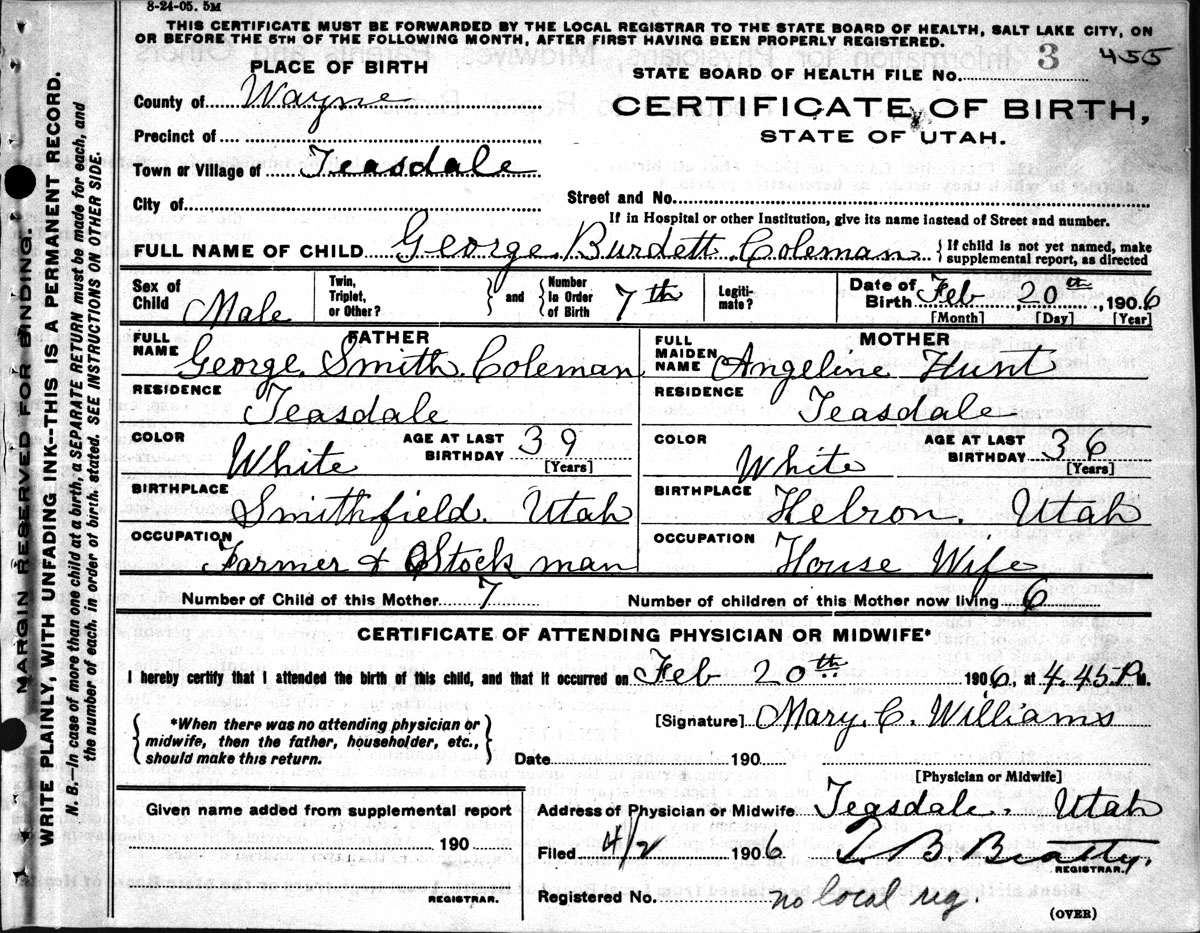 8-24-05. 5M
THIS CERTIFICATE MUST BE FORWARDED BY THE LOCAL REGISTRAR TO THE STATE BOARD OF HEALTH, SALT LAKE CITY, ON
OR BEFORE THE 5TH OF THE FOLLOWING MONTH, AFTER FIRST HAVING BEEN PROPERLY REGISTERED.
3 455
PLACE OF BIRTH
STATE BOARD OF HEALTH FILE No.
County of Wayne
CERTIFICATE OF BIRTH,
STATE OF UTAH.
Precinct of
Town or Village of Teasdale
City of
Street and No.
If in Hospital or other Institution, give its name instead of Street and number.
FULL NAME OF CHILD George Burdett Coleman {If child is not yet named, make
supplemental report, as directed
Sex of
Child Male
Twin,
Triplet,
or Other?
} and {
Number
In Order
of Birth 7th
Legiti-
mate?
Date of
Birth Feb 20th, 1906
[Month] [Day] [Year]
FATHER
FULL
NAME George Smith Coleman
MOTHER
FULL
MAIDEN
NAME Angeline Hunt
RESIDENCE Teasdale
RESIDENCE Teasdale
COLOR White
AGE AT LAST
BIRTHDAY 39
[Years]
COLOR White
AGE AT LAST
BIRTHDAY 36
[Years]
BIRTHPLACE Smithfield. Utah
BIRTHPLACE Hebron. Utah
OCCUPATION Farmer & Stock man
OCCUPATION House Wife
Number of Child of this Mother 7 Number of children of this Mother now living 6
CERTIFICATE OF ATTENDING PHYSICIAN OR MIDWIFE*
I hereby certify that I attended the birth of this child, and that it occurred on Feb 20th 1906, at 4.45 P. M.
{*When there was no attending physician or
midwife, then the father, householder, etc.,
should make this return.}
[Signature] Mary C. Williams
Date 190
[Physician or Midwife]
Given name added from supplemental report
190
REGISTRAR.
Address of Physician or Midwife Teasdale. Utah
Filed 4/2 1906 T. B. Beatty.
REGISTRAR.
Registered No. no local reg.
(OVER)
MARGIN RESERVED FOR BINDING.
WRITE PLAINLY, WITH UNFADING INK--THIS IS A PERMANENT RECORD.
N. B.--In case of more than one child at a birth, a SEPARATE RETURN must be made for each, and
the number of each, in order of birth, stated. SEE INSTRUCTIONS ON OTHER SIDE.